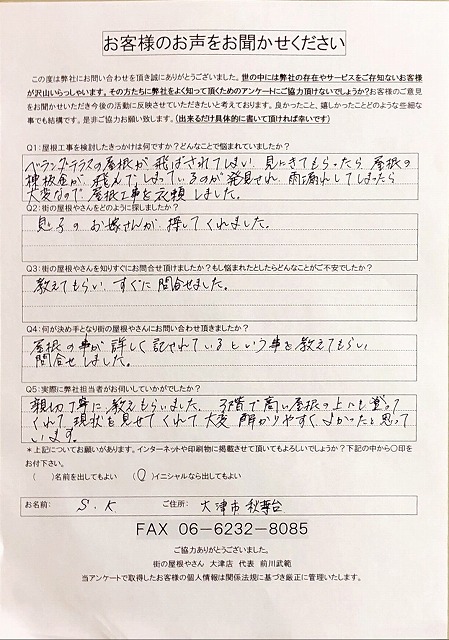 お客様のお声をお聞かせください
この度は弊社にお問い合わせを頂き誠にありがとうございました。世の中には弊社の存在やサービスをご存知ないお客様
が沢山いらっしゃいます。その方たちに弊社をよく知って頂くためのアンケートにご協力頂けないでしょうか?お客様のご意
見をお聞かせいただき今後の活動に反映させていただきたいと考えております。良かったこと、嬉しかったことどのような些細な
事でも結構です。是非ご協力お願い致します。(出来るだけ具体的に書いて頂ければ幸いです)
Q1:屋根工事を検討したきっかけは何ですか?どんなことで悩まれていましたか?
ベランダテラスの屋根が飛ばされてしまい、見にきてもらったら、屋根の
棟板金が飛んでしまっているのが発見され、雨漏れしてしまったら
大変なので屋根工事を依頼しました。
Q2:街の屋根やさんをどのように探しましたか?
息子のお嫁さんが探してくれました。
Q3:街の屋根やさんを知りすぐにお問合せ頂けましたか?もし悩まれたとしたらどんなことがご不安でしたか?
教えてもらい、すぐに問合せました。
Q4:何が決め手となり街の屋根やさんにお問い合わせ頂きましたか?
屋根の事が詳しく記されているという事を教えてもらい
問合せしました。
Q5:実際に弊社担当者がお伺いしていかがでしたか?
親切丁寧に教えもらいました。3階で高い屋根の上にも登って
くれて現状を見せてくれて大変解かりやすくよかったと思って
います。
*上記についてお願いがあります。インターネットや印刷物に掲載させて頂いてもよろしいでしょうか?下記の中から〇印を
お付け下さい。
( )名前を出してもよい (○)イニシャルなら出してもよい
お名前: S.K ご住所: 大津市秋葉台
FAX 06-6232-8085
ご協力ありがとうございました。
街の屋根やさん 大津店 代表 前川武範
当アンケートで取得したお客様の個人情報は関係法規に基づき厳正に管理いたします。